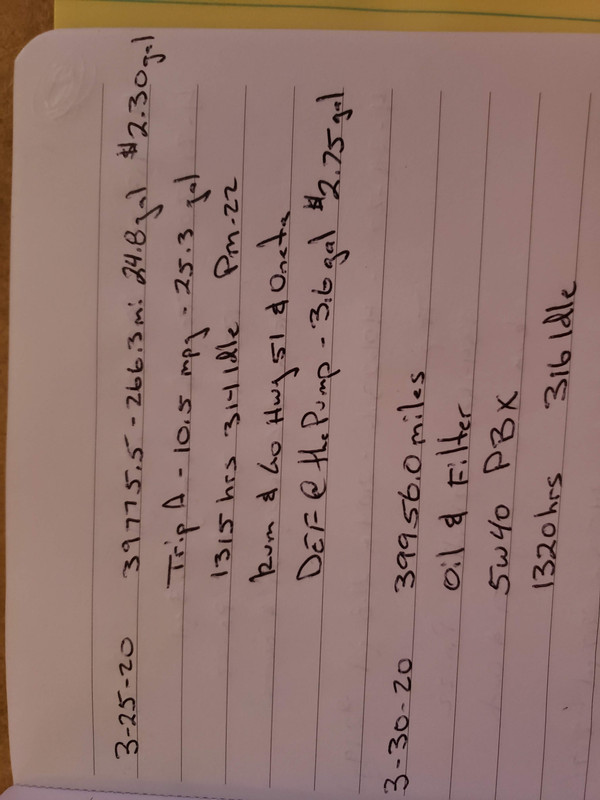 3-25-20 39775.5 - 266.3 mi 24.8 gal $2.30 gal
Trip A - 10.5 mpg - 25.3 gal
1315 hrs 314 Idle Pm-22
Kum & Go Hwy 51 & Oneta
DEF @ the Pump - 3.6 gal $2.75 gal
3-30-20 39956.0 miles
Oil & Filter
5w40 PBX
1320 hrs 316 Idle